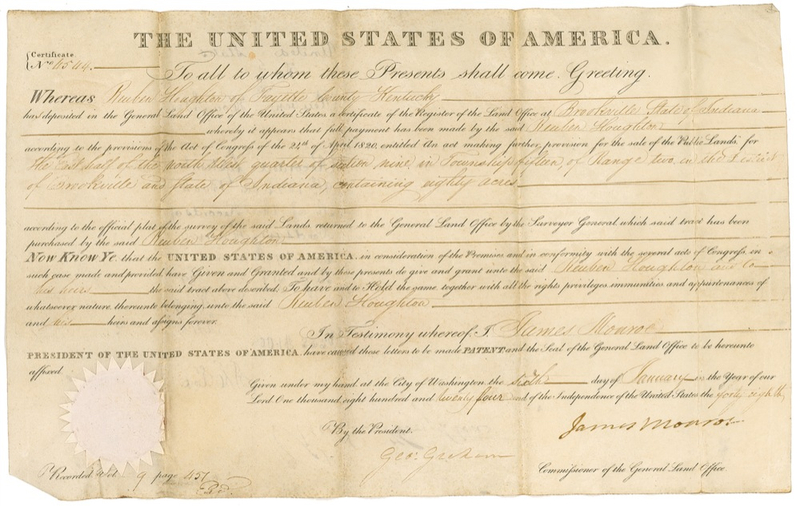 THE UNITED STATES OF AMERICA.
Certificate
No. 4544
To all to whom these Presents shall come, Greeting.
Whereas Reuben Houghton of Fayette County Kentucky
has deposited in the General Land Office of the United States a certificate of the Register of the Land Office at Brookville State of Indiana
whereby it appears that full payment has been made by the said Reuben Houghton
according to the provisions of the Act of Congress of the 24th of April 1820, entitled An act making further provision for the sale of the Public Lands, for
the East half of the north quarter of section nine, in Township fifteen of Range two, in the District
of Brookville and State of Indiana containing eighty acres
according to the official plat of the survey of the said Lands returned to the General Land Office by the Surveyor General, which said tract has been
purchased by the said Reuben Houghton
Now Know Ye, that the UNITED STATES OF AMERICA, in consideration of the Premises and in conformity with the several acts of Congress, in
such case made and provided have Given and Granted and by these presents do give and grant unto the said Reuben Houghton and to
his heirs the said tract above described, To have and to Hold the same together with all the rights privileges immunities and appurtenances of
whatsoever nature, thereunto belonging, unto the said Reuben Houghton
and his heirs and assigns forever.
In Testimony whereof, I James Monroe
PRESIDENT OF THE UNITED STATES OF AMERICA, have caused these letters to be made PATENT and the Seal of the General Land Office to be hereunto
affixed.
Given under my hand at the City of Washington the sixth day of January in the Year of our
Lord One thousand eight hundred and twenty four and of the Independence of the United States the forty eighth
By the President. James Monroe
Geo: Graham Commissioner of the General Land Office.
Recorded Vol. 9 page 457